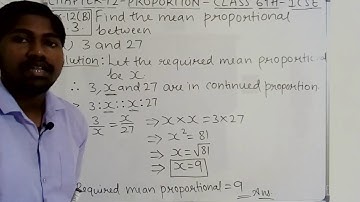 CHAPTER-12-PROPORTION-CLASS 6TH-ICSE
12(B) Find the mean proportional
3 between
3 and 27
Solution: Let the required mean proportional
be x
∴ 3, x and 27 are in continued proportion
3:x::x:27
3/x = x/27 ⇒ x × x = 3 × 27
⇒ x² = 81
⇒ x = √81
⇒ x = 9
Required mean proportional = 9 Ans